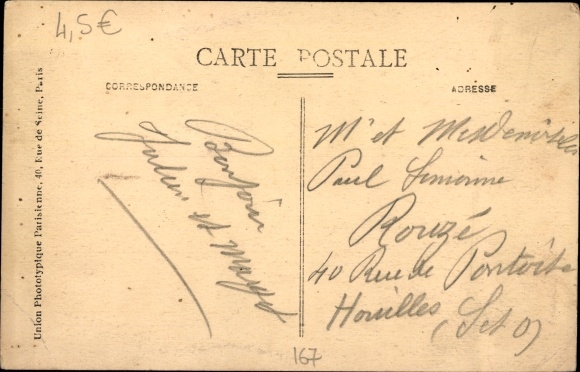 4,5€
CARTE POSTALE
CORRESPONDANCE
ADRESSE
Union Phototypique Parisienne, 40, Rue de Seine, Paris
Bonjour
Julien et
Mr et
Paul Simonne
Rouzé
40 Rue de Pontoise
Houilles
(S et O)
167